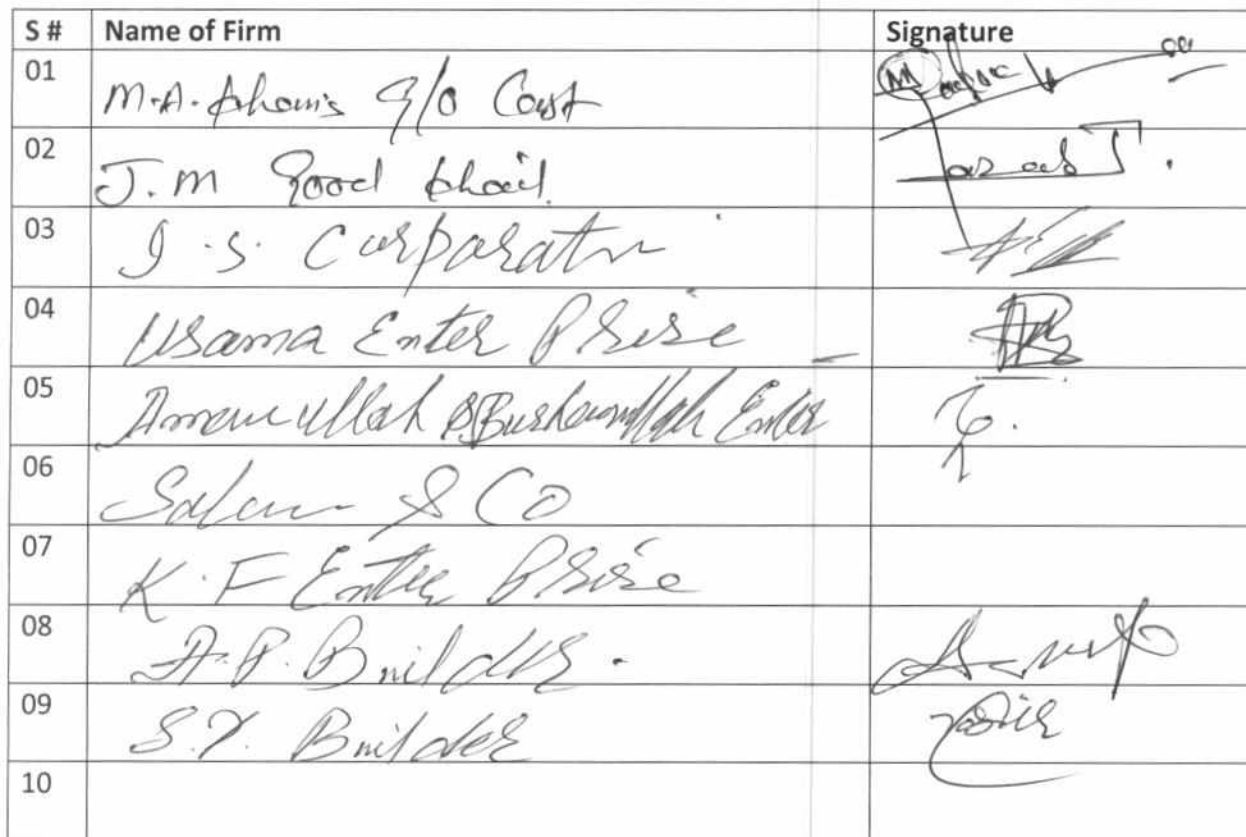 S # Name of Firm Signature
01 M.A. Khamis G/o Const
02 J.M Good Khail
03 J.S. Corporatn
04 Usama Enter Prise
05 Amanullah & Burhanullah Enter
06 Salam & Co
07 K.F Enter Prise
08 A.P. Builders.
09 S.Y. Builder Yasir
10